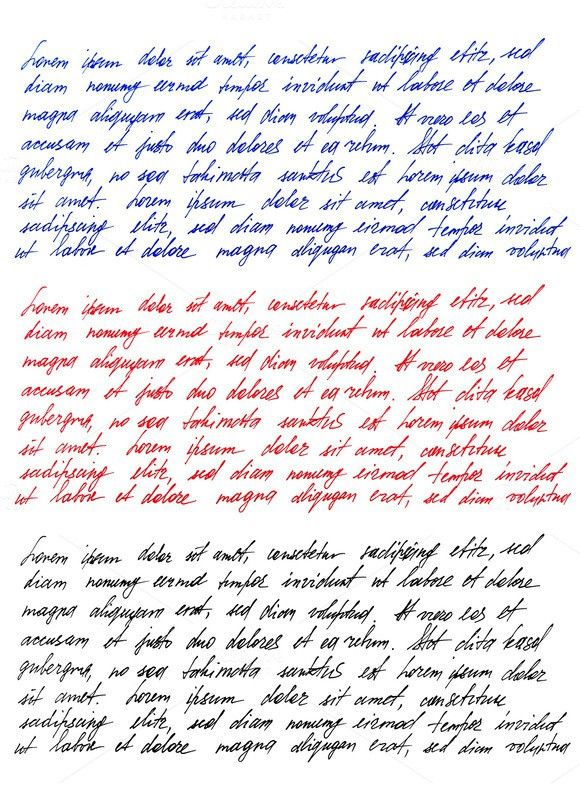 Lorem ipsum dolor sit amet, consetetur sadipscing elitr, sed
diam nonumy eermd tempor invidunt ut labore et dolore
magna aliquyam erat, sed diam voluptua. At vero eos et
accusam et justo duo dolores et ea rebum. Stet clita kasd
gubergren, no sea takimatta sanktus est Lorem ipsum dolor
sit amet. Lorem ipsum dolor sit amet, consetetur
sadipscing elitr, sed diam nonumy eirmod tempor invidut
ut labore et dolore magna aliquyan erat, sed diam voluptua
Lorem ipsum dolor sit amet, consetetur sadipscing elitr, sed
diam nonumy eermd tempor invidunt ut labore et dolore
magna aliquyam erat, sed diam voluptua. At vero eos et
accusam et justo duo dolores et ea rebum. Stet clita kasd
gubergren, no sea takimatta sanktus est Lorem ipsum dolor
sit amet. Lorem ipsum dolor sit amet, consetetur
sadipscing elitr, sed diam nonumy eirmod tempor invidut
ut labore et dolore magna aliquyan erat, sed diam voluptua
Lorem ipsum dolor sit amet, consetetur sadipscing elitr, sed
diam nonumy eermd tempor invidunt ut labore et dolore
magna aliquyam erat, sed diam voluptua. At vero eos et
accusam et justo duo dolores et ea rebum. Stet clita kasd
gubergren, no sea takimatta sanktus est Lorem ipsum dolor
sit amet. Lorem ipsum dolor sit amet, consetetur
sadipscing elitr, sed diam nonumy eirmod tempor invidut
ut labore et dolore magna aliquyan erat, sed diam voluptua